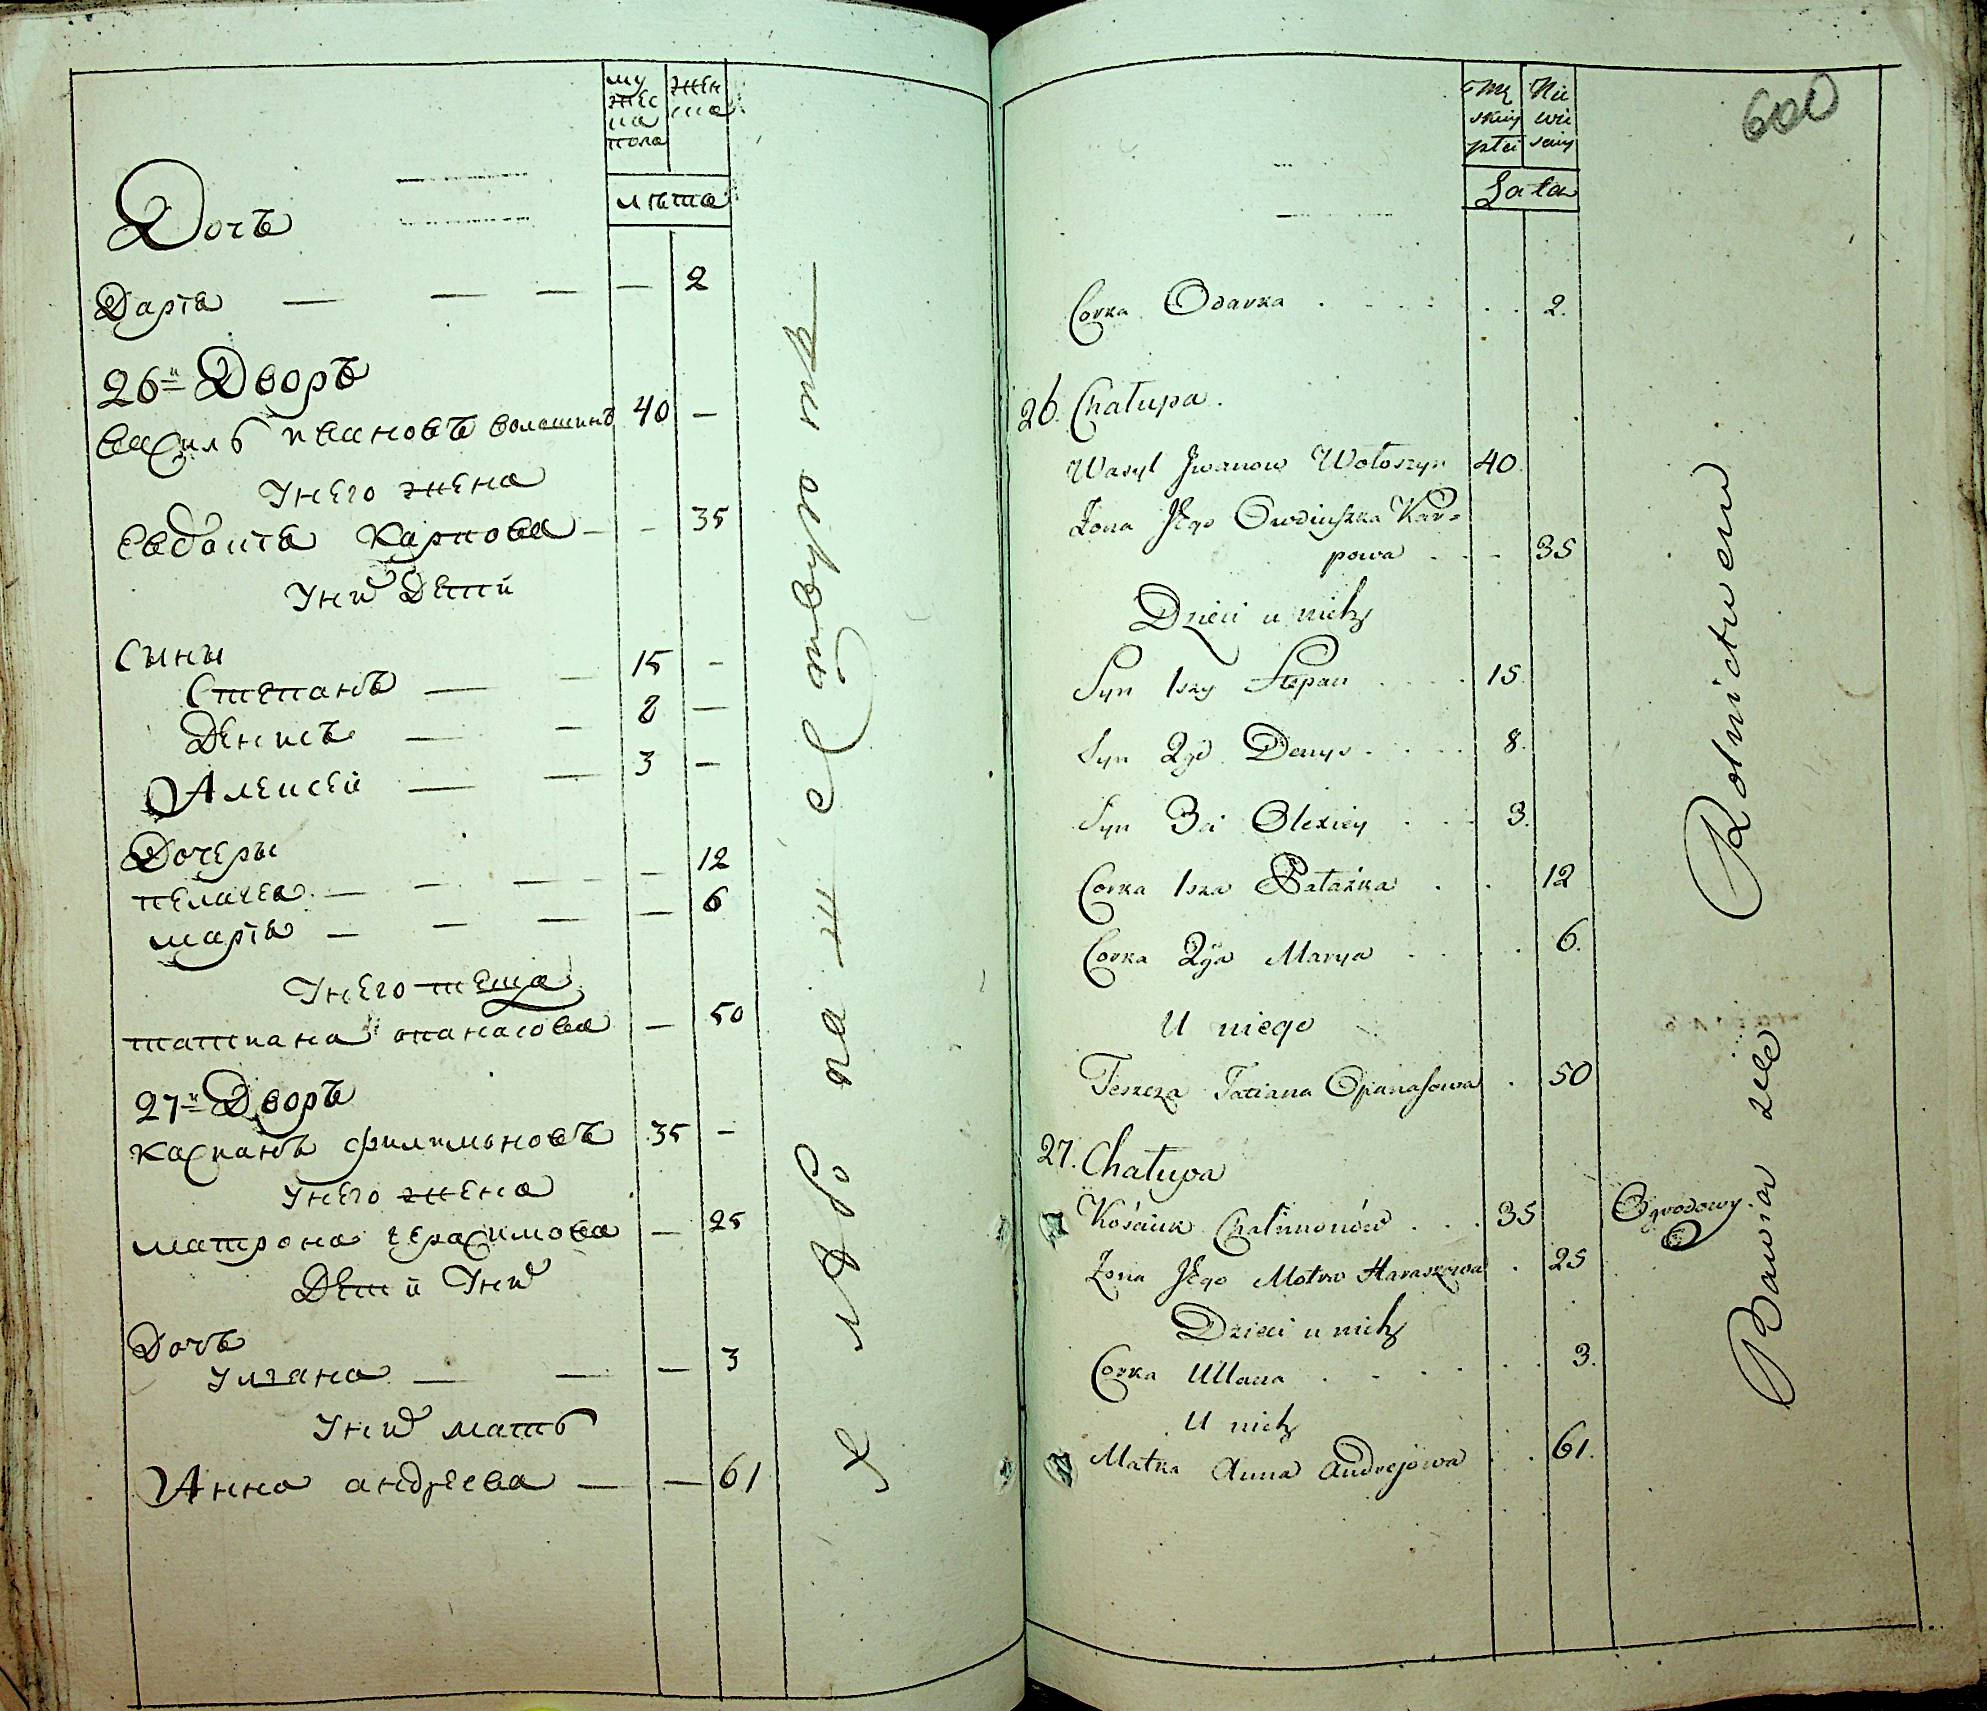 му
жес
ка
пола
жен
ска
лѣта
Дочь
Дарїа — — — — 2
26й Дворъ
василь ивановъ волошинъ 40 —
Унего жена
Евдокїа Карпова — — 35
Уних Дети
Сыны
Степанъ — — 15 —
Денисъ — — 8 —
Алексей — — 3 —
Дочеры
пелагея — — — — 12
марїа — — — — 6
Унего теща
татиана опанасова — 50
27й Дворъ
Касианъ филимоновъ 35 —
Унего жена
матрона герасимова — 25
Дети Уних
Дочь
Улиана — — — 3
Уних мать
Анна андреева — — 61
хлѣбопашествуютъ
Mę
skiey
płci
Nie
wie
sciey
Lata
600
Corka Odarka . . . . . . 2.
26. Chałupa.
Wasyl Jwanow Wołoszyn 40.
Zona Jego Owdiuszka Kar=
powa . . . 35
Dzieci u nich
Syn 1szy Stepan . . . . 15.
Syn 2gi Denys . . . . 8.
Syn 3ci Olexiey . . . 3.
Corka 1sza Patażka . . 12
Corka 2ga Marya . . . . 6.
U niego
Teszcza Tatiana Opanasowa . 50
27. Chałupa
Kościan Chalimonów . . . 35 Ogrodowy.
Zona Jego Motra Haraszowa . 25
Dzieci u nich
Corka Ullana . . . . . . 3.
U nich
Matka Anna Andrejowa . . 61.
Bawia sie Rolnictwem